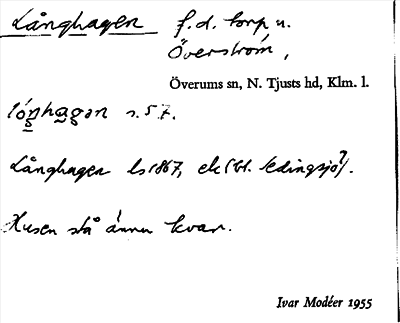 Långhagen f.d. torp u.
Överström,
Överums sn, N. Tjusts hd, Klm. l.
lóŋhagan s. 57.
Långhagen ls 1867, ek (bl.
Husen stå ännu kvar.
Ivar Modéer 1955